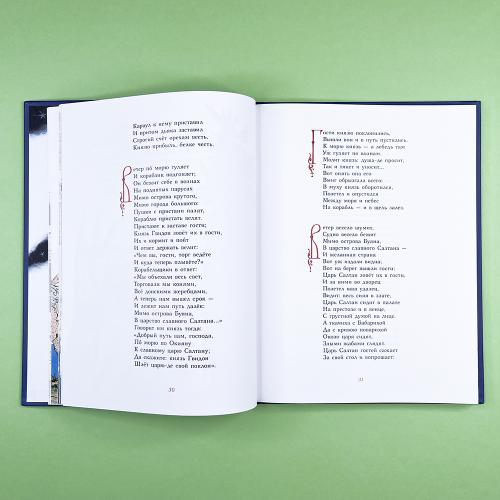 Караул к нему приставил
И притом дьяка заставил
Строгий счёт орехам весть.
Князю прибыль, белке честь.
Ветер по́ морю гуляет
И кораблик подгоняет;
Он бежит себе в волнах
На поднятых парусах
Мимо острова крутого,
Мимо города большого:
Пушки с пристани палят,
Кораблю пристать велят.
Пристают к заставе гости;
Князь Гвидон зовёт их в гости,
Их и кормит и поит
И ответ держать велит:
«Чем вы, гости, торг ведёте
И куда теперь плывёте?»
Корабельщики в ответ:
«Мы объехали весь свет,
Торговали мы конями,
Всё донскими жеребцами,
А теперь нам вышел срок —
И лежит нам путь далёк:
Мимо острова Буяна,
В царство славного Салтана...»
Говорит им князь тогда:
«Добрый путь вам, господа,
По́ морю по Окияну
К славному царю Салтану;
Да скажите: князь Гвидон
Шлёт царю-де свой поклон».
30
Гости князю поклонились,
Вышли вон и в путь пустились.
К морю князь — а лебедь там
Уж гуляет по волнам.
Молит князь: душа-де просит,
Так и тянет и уносит...
Вот опять она его
Вмиг обрызгала всего:
В муху князь оборотился,
Полетел и опустился
Между моря и небес
На корабль — и в щель залез.
Ветер весело шумит,
Судно весело бежит
Мимо острова Буяна,
В царство славного Салтана —
И желанная страна
Вот уж издали видна;
Вот на берег вышли гости;
Царь Салтан зовёт их в гости,
И за ними во дворец
Полетел наш удалец.
Видит: весь сияя в злате,
Царь Салтан сидит в палате
На престоле и в венце,
С грустной думой на лице.
А ткачиха с Бабарихой
Да с кривою поварихой
Около царя сидят,
Злыми жабами глядят.
Царь Салтан гостей сажает
За свой стол и вопрошает:
31